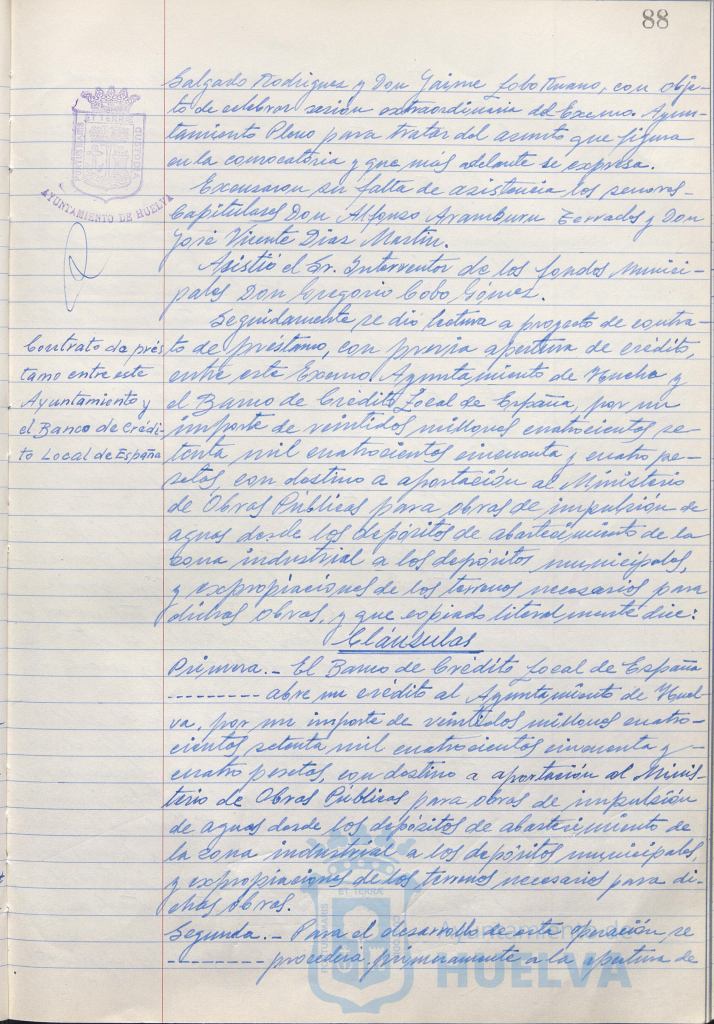 88
Salgado Rodriguez y Don Jaime Lobo Ruano, con obje-
to de celebrar sesión extraordinaria del Excmo. Ayun-
tamiento Pleno para tratar del asunto que figura
en la convocatoria y que más adelante se expresa.
Excusaron su falta de asistencia los señores
Capitulares Don Alfonso Aramburu Terrades y Don
José Vicente Diaz Martin.
Asistió el Sr. Interventor de los fondos Munici-
pales Don Gregorio Cobo Gómez.
Seguidamente se dio lectura a proyecto de contra-
to de préstamo, con previa apertura de crédito,
entre este Excmo Ayuntamiento de Huelva y
el Banco de Crédito Local de España, por un
importe de veintidos millones cuatrocientos se-
tenta mil cuatrocientos cincuenta y cuatro pe-
setas, con destino a aportación al Ministerio
de Obras Públicas para obras de impulsión de
aguas desde los depósitos de abastecimiento de la
zona industrial a los depósitos municipales,
y expropiaciones de los terrenos necesarios para
dichas obras, y que copiado literalmente dice:
Cláusulas
Primera.- El Banco de Crédito Local de España
--------- abre un crédito al Ayuntamiento de Huel-
va, por un importe de veintidos millones cuatro-
cientos setenta mil cuatrocientos cincuenta y
cuatro pesetas, con destino a aportación al Minis-
terio de Obras Públicas para obras de impulsión
de aguas desde los depósitos de abastecimiento de
la zona industrial a los depósitos municipales,
y expropiaciones de los terrenos necesarios para di-
chas obras.
Segunda.- Para el desarrollo de esta operación, se
--------- procederá primeramente a la apertura de
Contrato de prés-
tamo entre este
Ayuntamiento y
el Banco de Crédi-
to Local de España
ET TERRA
PORTUS MARIS
CUSTODIA
AYUNTAMIENTO DE HUELVA
ET TERRA
PORTUS MARIS
CUSTODIA
Ayuntamiento de
HUELVA